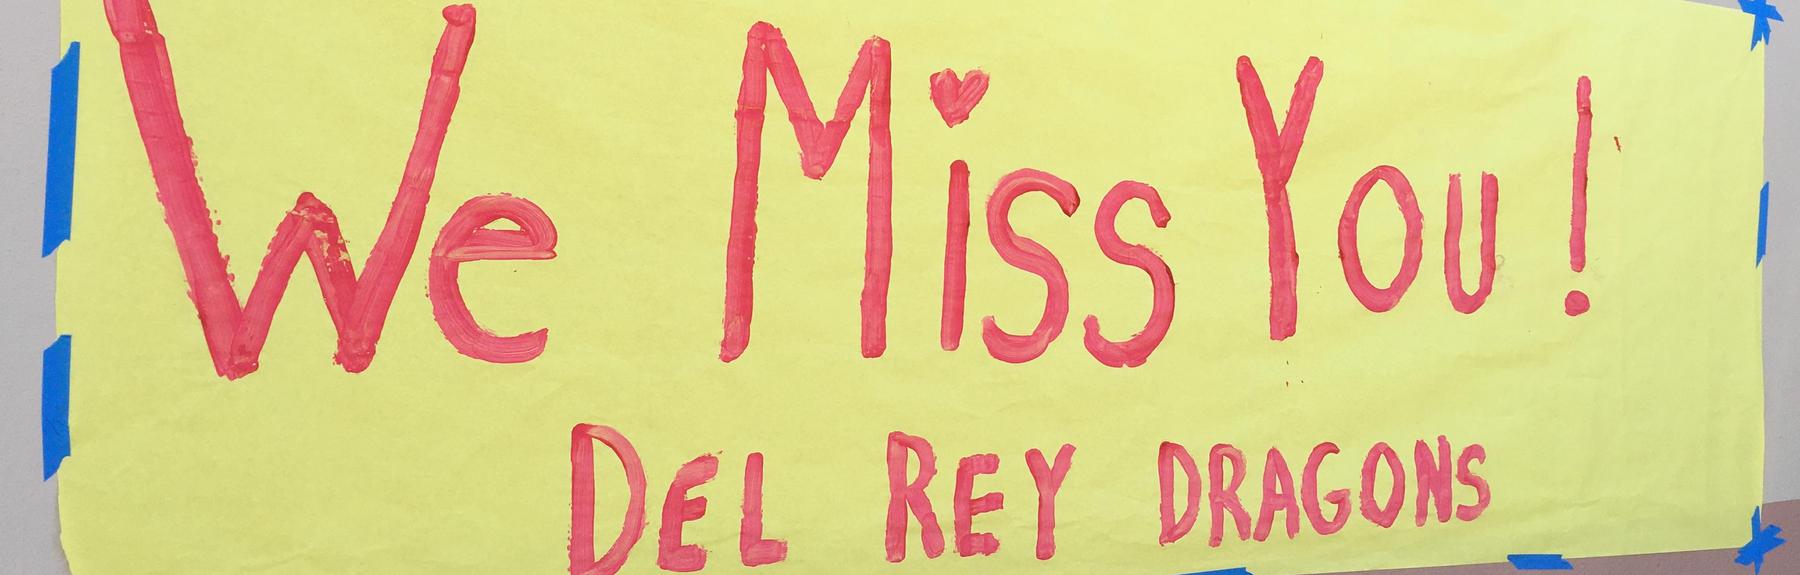 We Miss You!
DEL REY DRAGONS